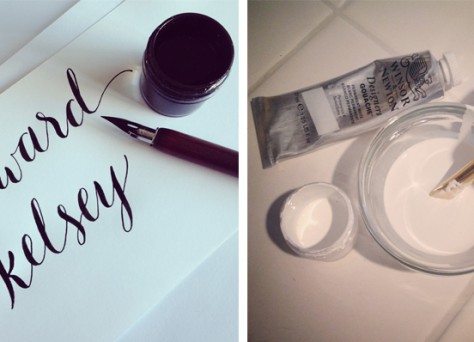 ward
kelsey
WINSOR
NEWTON
Designers
GOUACHE